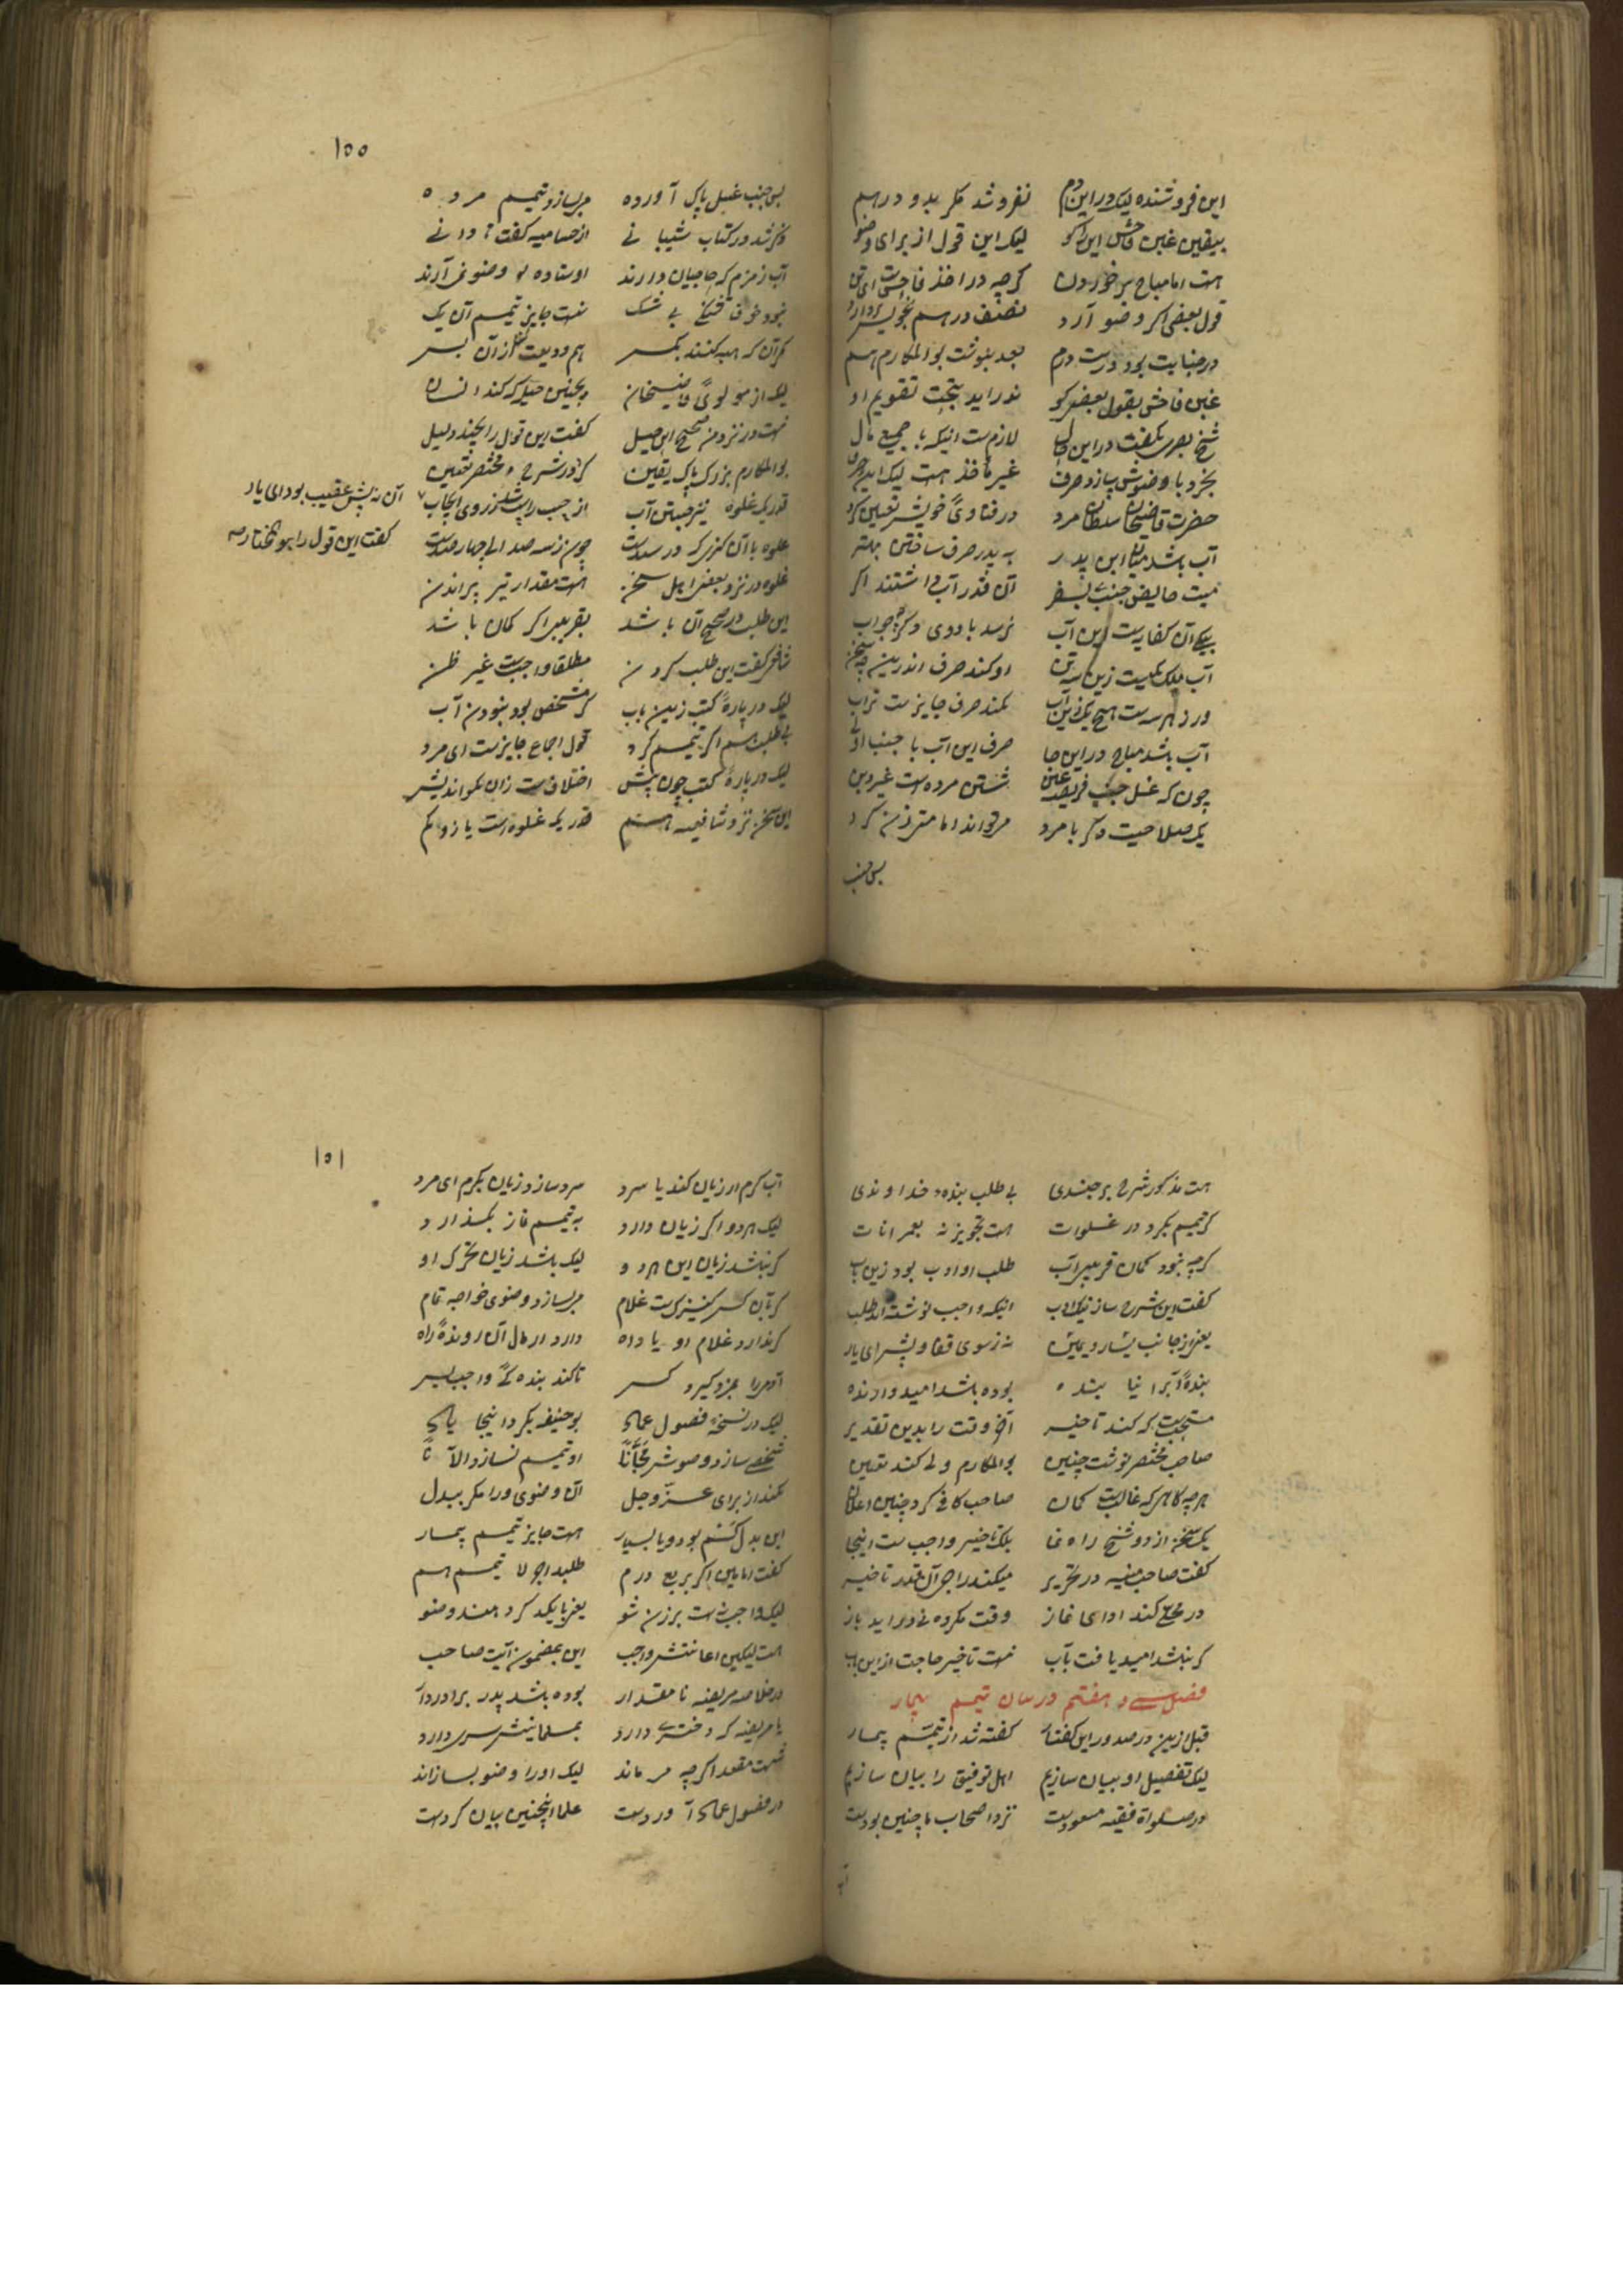 این فروشنده لیک در این دم نفروشد مگر بدو درهم
بیقین غبن فاحش این را گو لیک این قول از برای وضو
هست اما مباح بر خوردن گرچه در اخذ فاحش است ای تن
قول بعضی اگر وضو آرد نصف درهم بجویش بردارد
در جنابت بود درست درم بعد بنوشت بوالمکارم هم
غبن فاحش بقول بعضی گو ندر آید بتحت تقویم او
شیخ بصری بگفت در این حال لازمست اینکه با جمیع مال
بخرد با وضوش سازد صرف غیر مأخذ هست لیک این حرف
حضرت قاضیخان سلطان مرد در فتاوئ خویش تعیین کرد
آب باشد میان ابن پدر به پدر صرف ساختن بهتر
میت حایض جنب بسفر آن قدر آب داشتند اگر
بیکی آن کفایت این آب نرسد با دوی دگر جواب
آب ملک یکیست زین سه تن او کند صرف اندرین چه سخن
ور ز هر سه است هیچ یک زین آب نکند صرف جایزست تراب
آب باشد مباح در این جا صرف این آب با جنب اولی
چون که غسل جنب فریضه عین شستن مرده است غیر دین
یک صلاحیت دگر با مرد مرتواند امامت زن کرد
پس جنب
۱۵۰
پس جنب غسل پاک آورده مر بسازد تیمم مرده
ذکر شد در کتاب شیبانی از حسامیه گفت تا دانی
آب زمزم که حاجیان دارند اوستاده وضو نمی آرند
نبود خوف تشنگی بی شک نیست جایز تیمم آن یک
مگر آن که هبه کنند بکسر هم ودیعت کند از آن پسر
لیک از مولوئ قاضیخان اینچنین حیله که کند انسان
نیست در نزد من صحیح این حیل گفت این قول را بچند دلیل
بوالمکارم بزرک پاک یقین کرد در شرح مختصر تعیین
قدر یک غلوه نیز جستن آب از چپ راست شد ز روی ایجاب
آن نه پیش عقیب بود ای یار
غلوه با آن کزی که در سه است چون ز سه صد الی چهار صد است
گفت این قول را هو المختار
غلوه در نزد بعض اهل سخن هست مقدار تیر پراندن
این طلب در صحیح آن باشد بقریبی اگر گمان باشد
شافعی گفت این طلب کردن مطلقا واجب است غیر ظن
لیک در بارهٔ کتب زین باب گر مشخص بود نبودن آب
بی طلب هم اگر تیمم کرد قول اجماع جایزست ای مرد
لیک در بارهٔ کتب چون پیش اختلافست زان نکو اندیش
این سخن نزد شافعیه هم قدر یک غلوه است یا زو کم
هست مذکور شرح برجندی بی طلب بنده خداوندی
گر تیمم بکرد در غسلوات هست تجویز نه بعمرانات
گرچه نبود گمان قریبی آب طلب او ادب بود زین باب
گفت این شرح ساز نیک ادب اینکه واجب نوشته اند طلب
یعنی از جانب یسار و یمین نه ز سوی قفا و پیش ای یار
بندهٔ آب را نیابنده بوده باشد امیدوارنده
مستحبست که کند تاخیر آخر وقت را بدین تقدیر
صاحب مختصر نوشت چنین بوالمکارم ولی کند تعیین
هر چه گاهی که غالبست گمان صاحب کافی کرد چنین اعلان
یک سخن از دو شیخ راه نما بلک تاخیر واجب ست اینجا
گفت صاحب منیه در تحریر میکند را جر آن قدر تاخیر
در محلی کند ادای نماز وقت مکروه نی در آید باز
گر نباشد امید یافت بآب نیست تاخیر حاجت از این باب
فصل سی و هفتم در بیان تیمم بیمار
قبل ازین در صدور این گفتار گفته شد از تیمّم بیمار
لیک تفصیل او بیان سازیم اهل توفیق را بیان سازیم
در صلواة فقیه مسعودست نزد اصحاب ما چنین بودست
آب
۱۵۱
آب گرم ار زیان کند یا سرد سرد سازد زیان بگرم ای مرد
لیک هر دو اگر زیان دارد به تیمم نماز بگذارد
گر نباشد زیان این هر دو لیک باشد زیان تحرک او
گر بآن کس کنیزکست غلام مر بسازد وضوی خواجه تمام
گر ندارد غلام او یا داه دارد ار مال آن روندهٔ راه
آدمی را بمزد گیرد کسر تا کند بنده گئ واجب بسر
لیک در نسخهٔ فصول عمادی بو حنیفه بکرد اینجا یادی
شخصی سازد وضوش مجاناً او تیمم نسازد الآناً
نکند از برای عزّ و جل آن وضوی ورا مگر ببدل
این بدل کم بود و یا بسیار هست جایز تیمم بیمار
گفت امامین اگر بربع درم طلبد اجر لا تیمم هم
لیک واجب نیست بر زن شو یعنی با یکدگر دهند وضو
هست لیکن اعانتش واجب این بمضمون آیت صاحب
در خلاصه مریضه نا مقدار بوده باشد پدر برادر دار
یا مریضه که دختری دارد بمسلمانیش سری دارد
نیست مقعد اگرچه مر ماند لیک او را وضو بسازاند
در فصول عمادی آوردست علما اینچنین بیان کردست